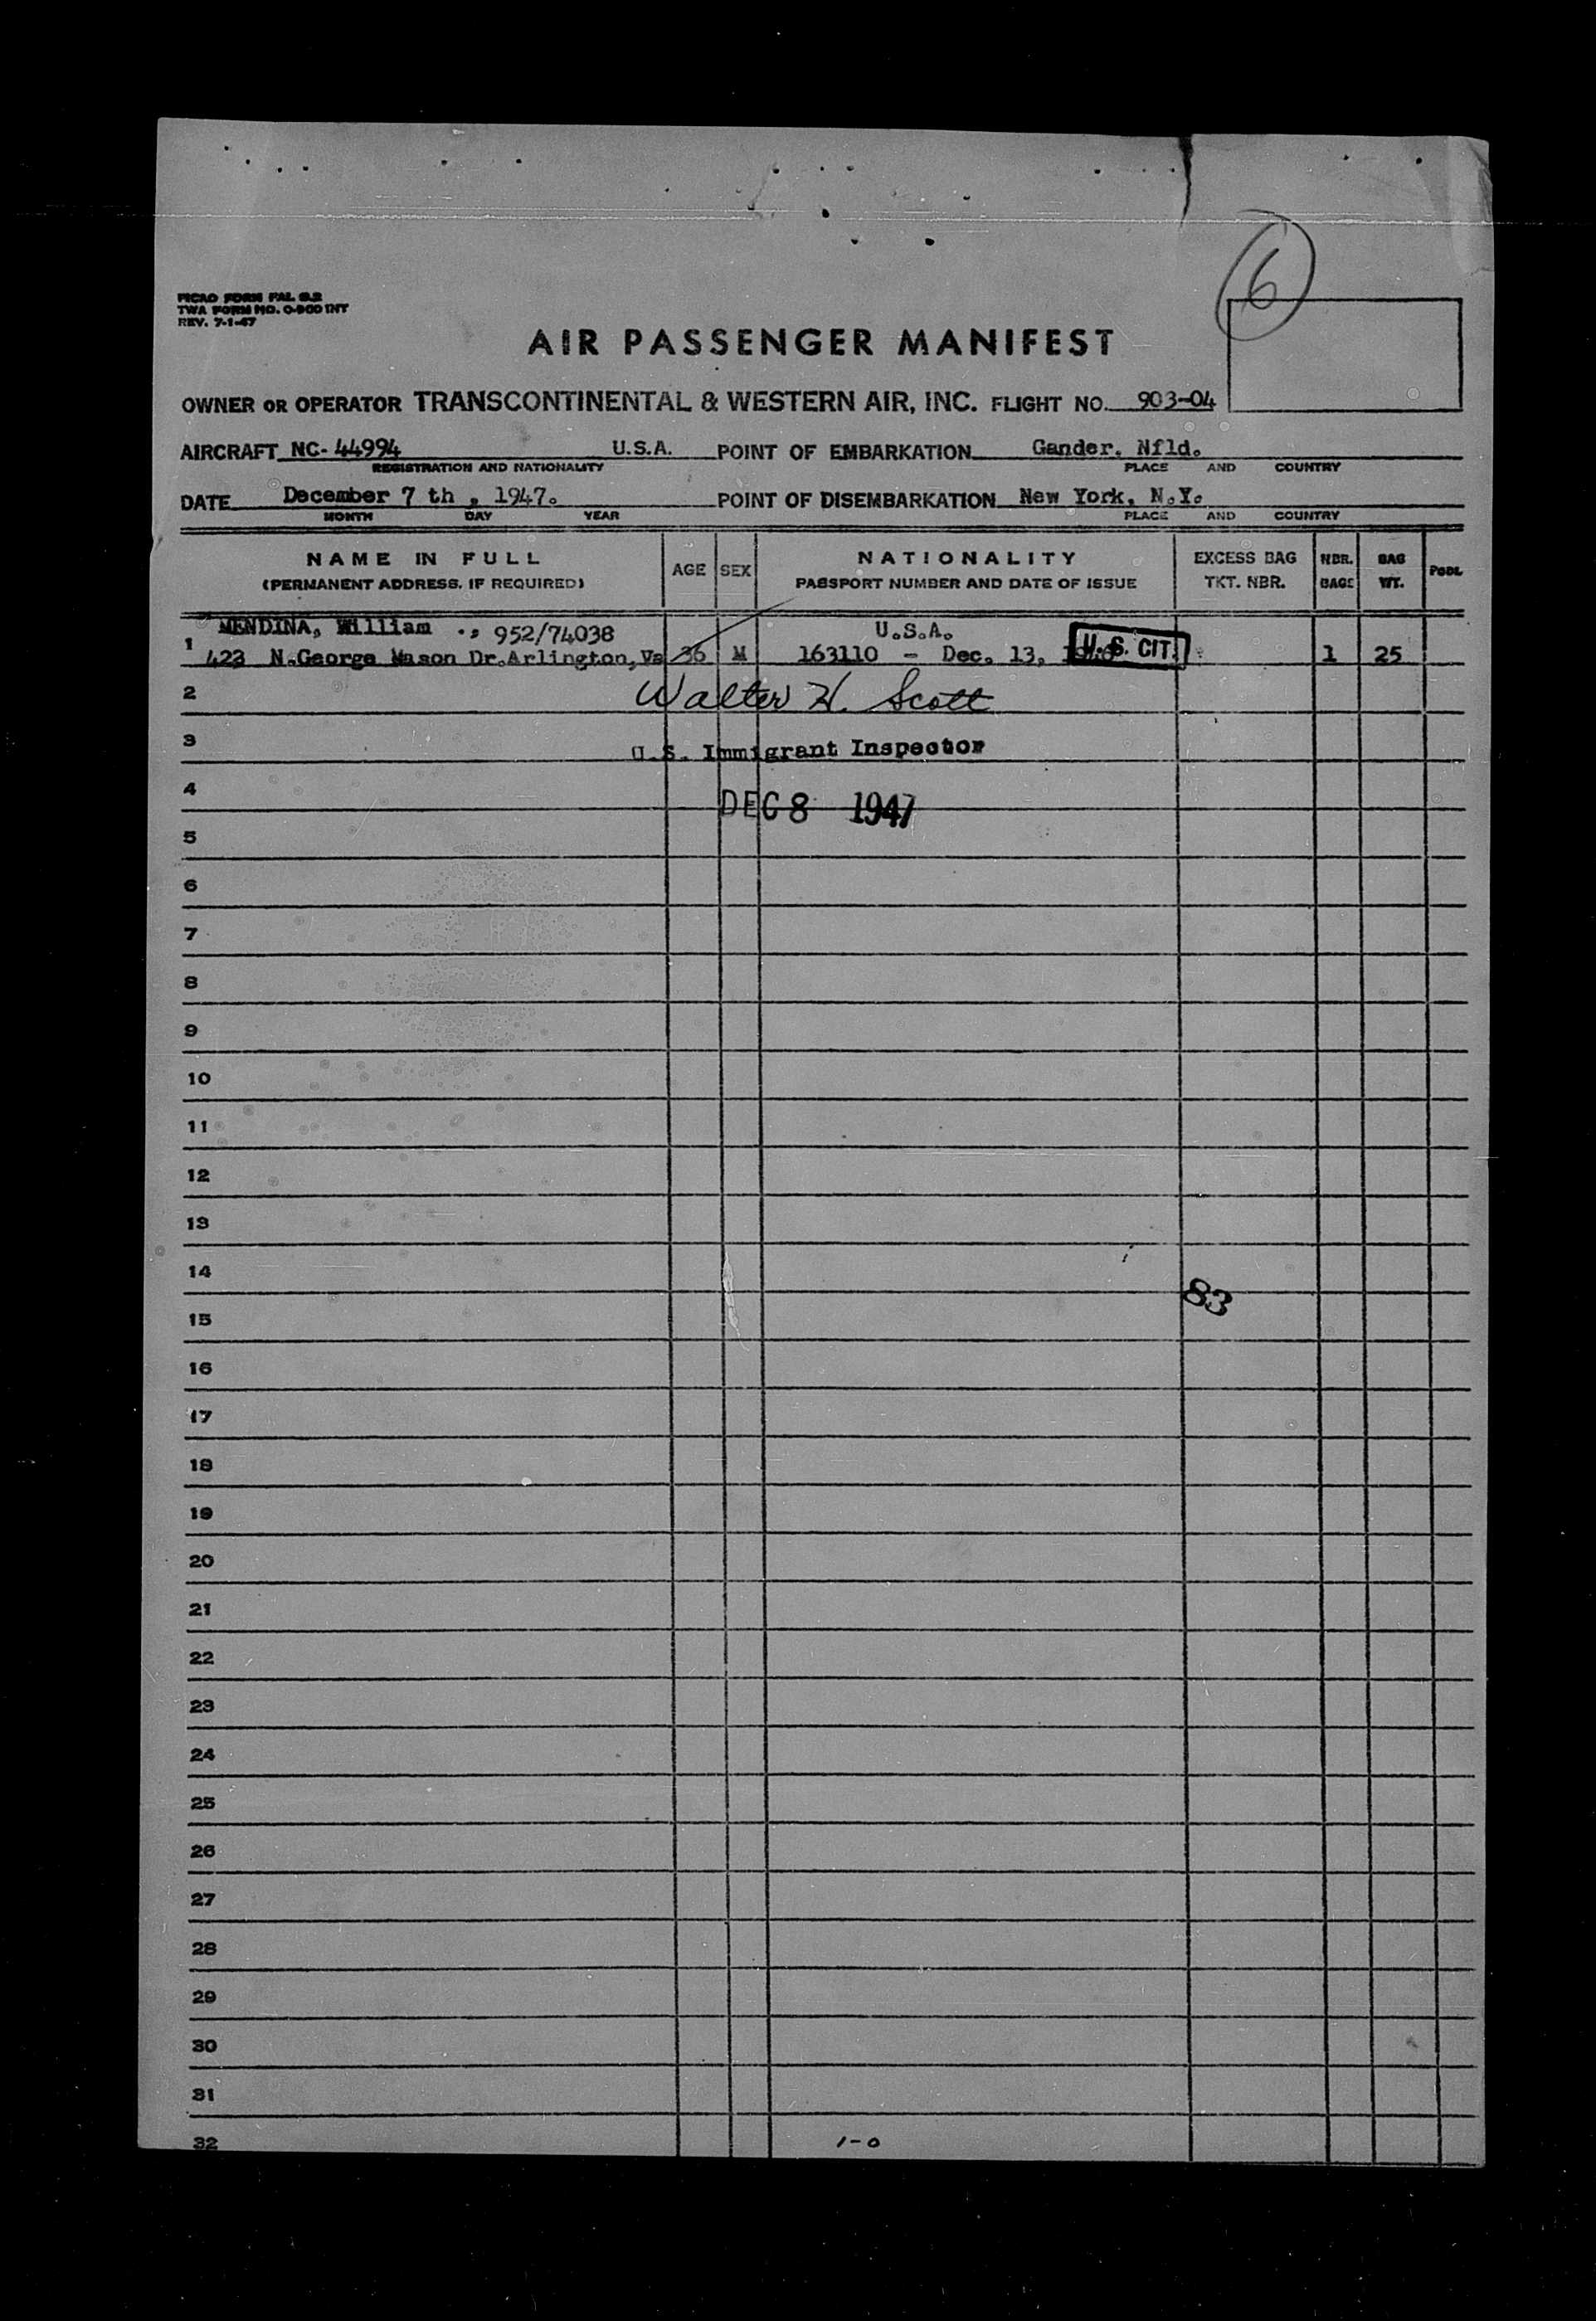 6
PICAO FORM FAL 6.2
TWA FORM NO. O-900 INT
REV. 7-1-47
AIR PASSENGER MANIFEST
OWNER OR OPERATOR TRANSCONTINENTAL & WESTERN AIR, INC. FLIGHT NO. 903-04
AIRCRAFT NC- 44994 U.S.A. POINT OF EMBARKATION Gander. Nfld.
REGISTRATION AND NATIONALITY PLACE AND COUNTRY
DATE December 7 th , 1947. POINT OF DISEMBARKATION New York, N.Y.
MONTH DAY YEAR PLACE AND COUNTRY
NAME IN FULL AGE SEX NATIONALITY EXCESS BAG NBR. BAG
(PERMANENT ADDRESS, IF REQUIRED) PASSPORT NUMBER AND DATE OF ISSUE TKT. NBR. BAGS WT.
MENDINA, William ., 952/74038 U.S.A.
1 423 N.George Mason Dr.Arlington,Va 36 M 163110 - Dec. 13, U.S. CIT. 1 25
2 Walter H. Scott
3 U.S. Immigrant Inspector
4 DEC 8 1947
5
6
7
8
9
10
11
12
13
14
83
15
16
17
18
19
20
21
22
23
24
25
26
27
28
29
30
31
32 1-0